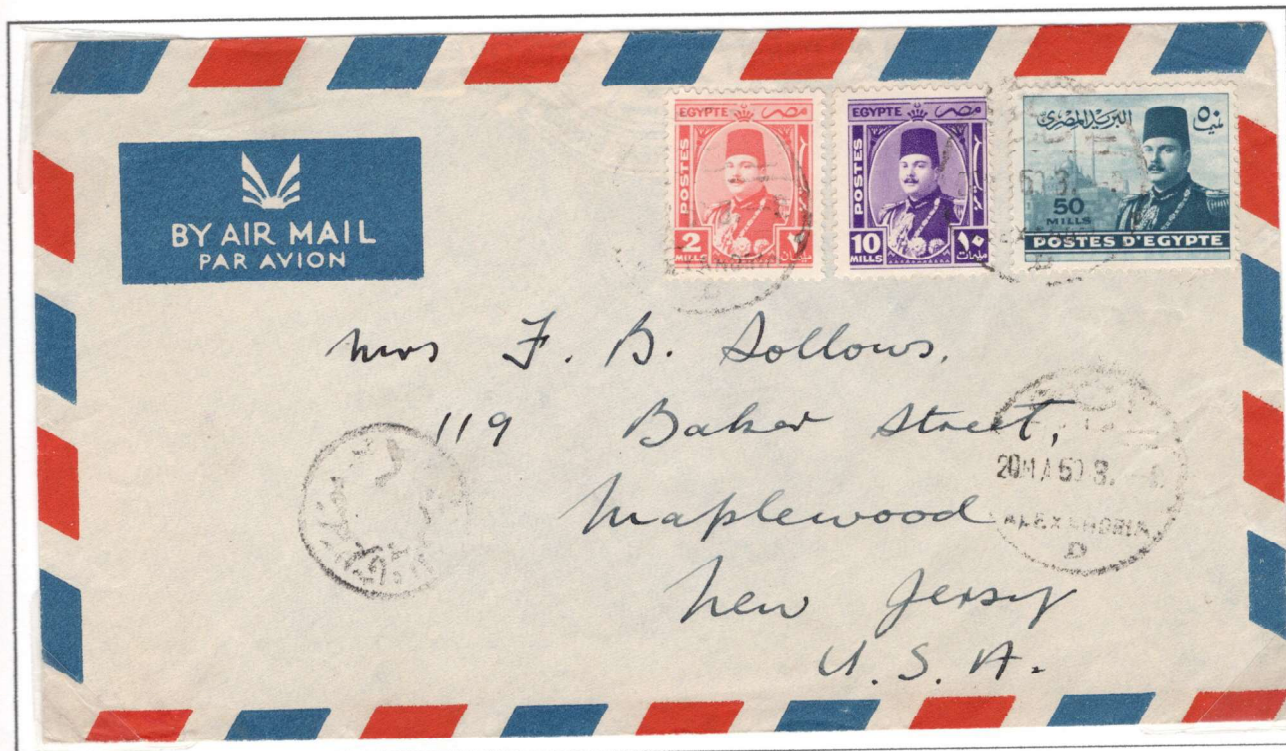 BY AIR MAIL
PAR AVION
EGYPTE مصر
POSTES
2 ٢
MILLS
EGYPTE مصر
POSTES
10 ١٠
MILLS مليمات
البريد المصرى ٥٠
50
MILLS
POSTES D'EGYPTE
Mrs F. B. Sollows.
119 Baker Street,
Maplewood
New Jersey
U. S. A.
20 MA 50 3.
ALEXANDRIA
D